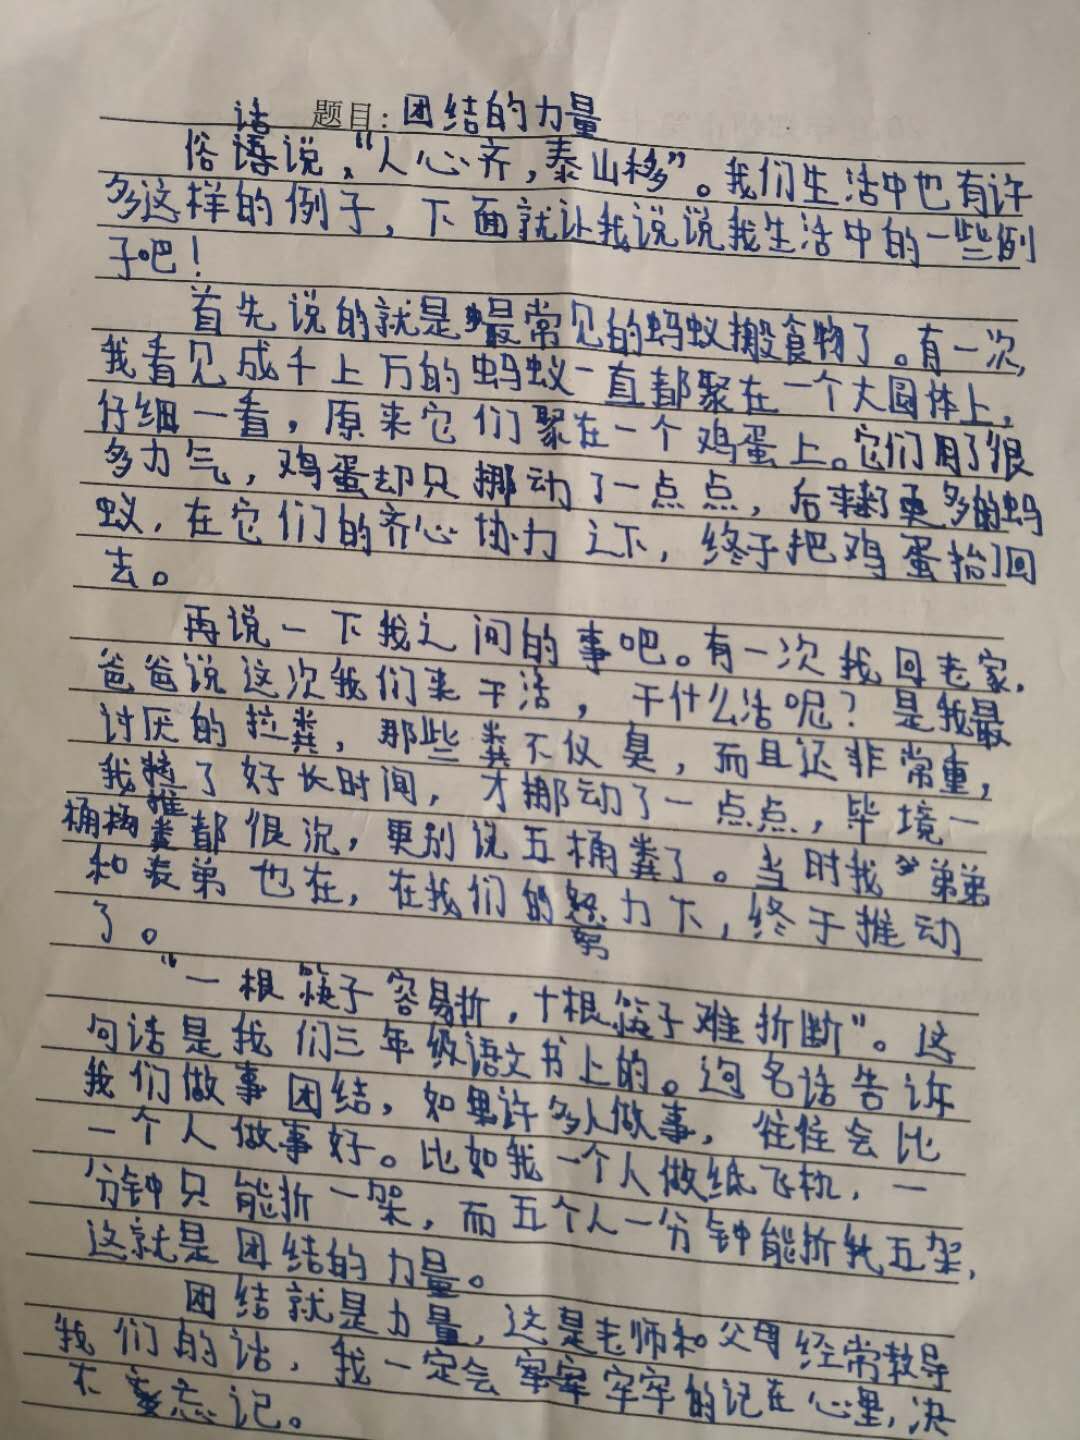 题目:团结的力量
俗话说,“人心齐,泰山移”。我们生活中也有许
多这样的例子,下面就让我说说我生活中的一些例
子吧!
首先说的就是最常见的蚂蚁搬食物了。有一次,
我看见成千上万的蚂蚁一直都聚在一个大圆体上,
仔细一看,原来它们聚在一个鸡蛋上。它们用了很
多力气,鸡蛋却只挪动了一点点,后来了更多的蚂
蚁,在它们的齐心协力之下,终于把鸡蛋抬回
去。
再说一下我之间的事吧。有一次我回老家,
爸爸说这次我们来干活,干什么活呢?是我最
讨厌的拉粪,那些粪不仅臭,而且还非常重,
我推了好长时间,才挪动了一点点,毕境一
桶粪都很沉,更别说五桶粪了。当时我弟弟
和表弟也在,在我们的努力下,终于推动
了。
“一根筷子容易折,十根筷子难折断”。这
句话是我们三年级语文书上的。这句话告诉
我们做事团结,如果许多人做事,往往会比
一个人做事好。比如我一个人做纸飞机,一
分钟只能折一架,而五个人一分钟能折五架,
这就是团结的力量。
团结就是力量,这是老师和父母经常教导
我们的话,我一定会牢牢的记在心里,决
不忘记。